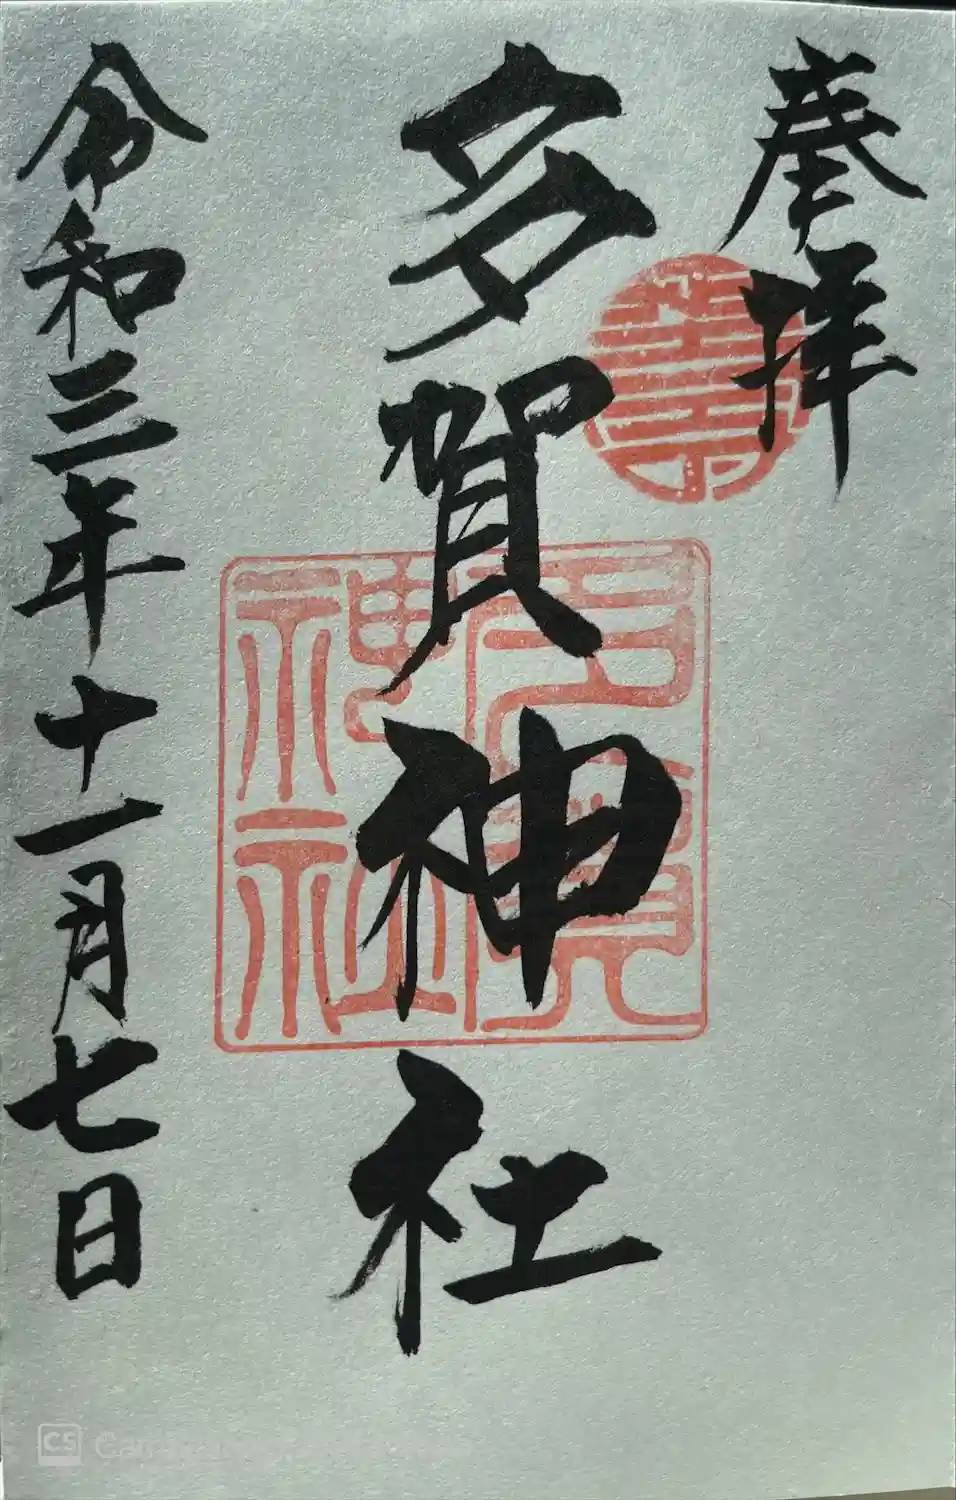 奉拝
多賀神社
令和三年十一月七日
多賀神社
CS